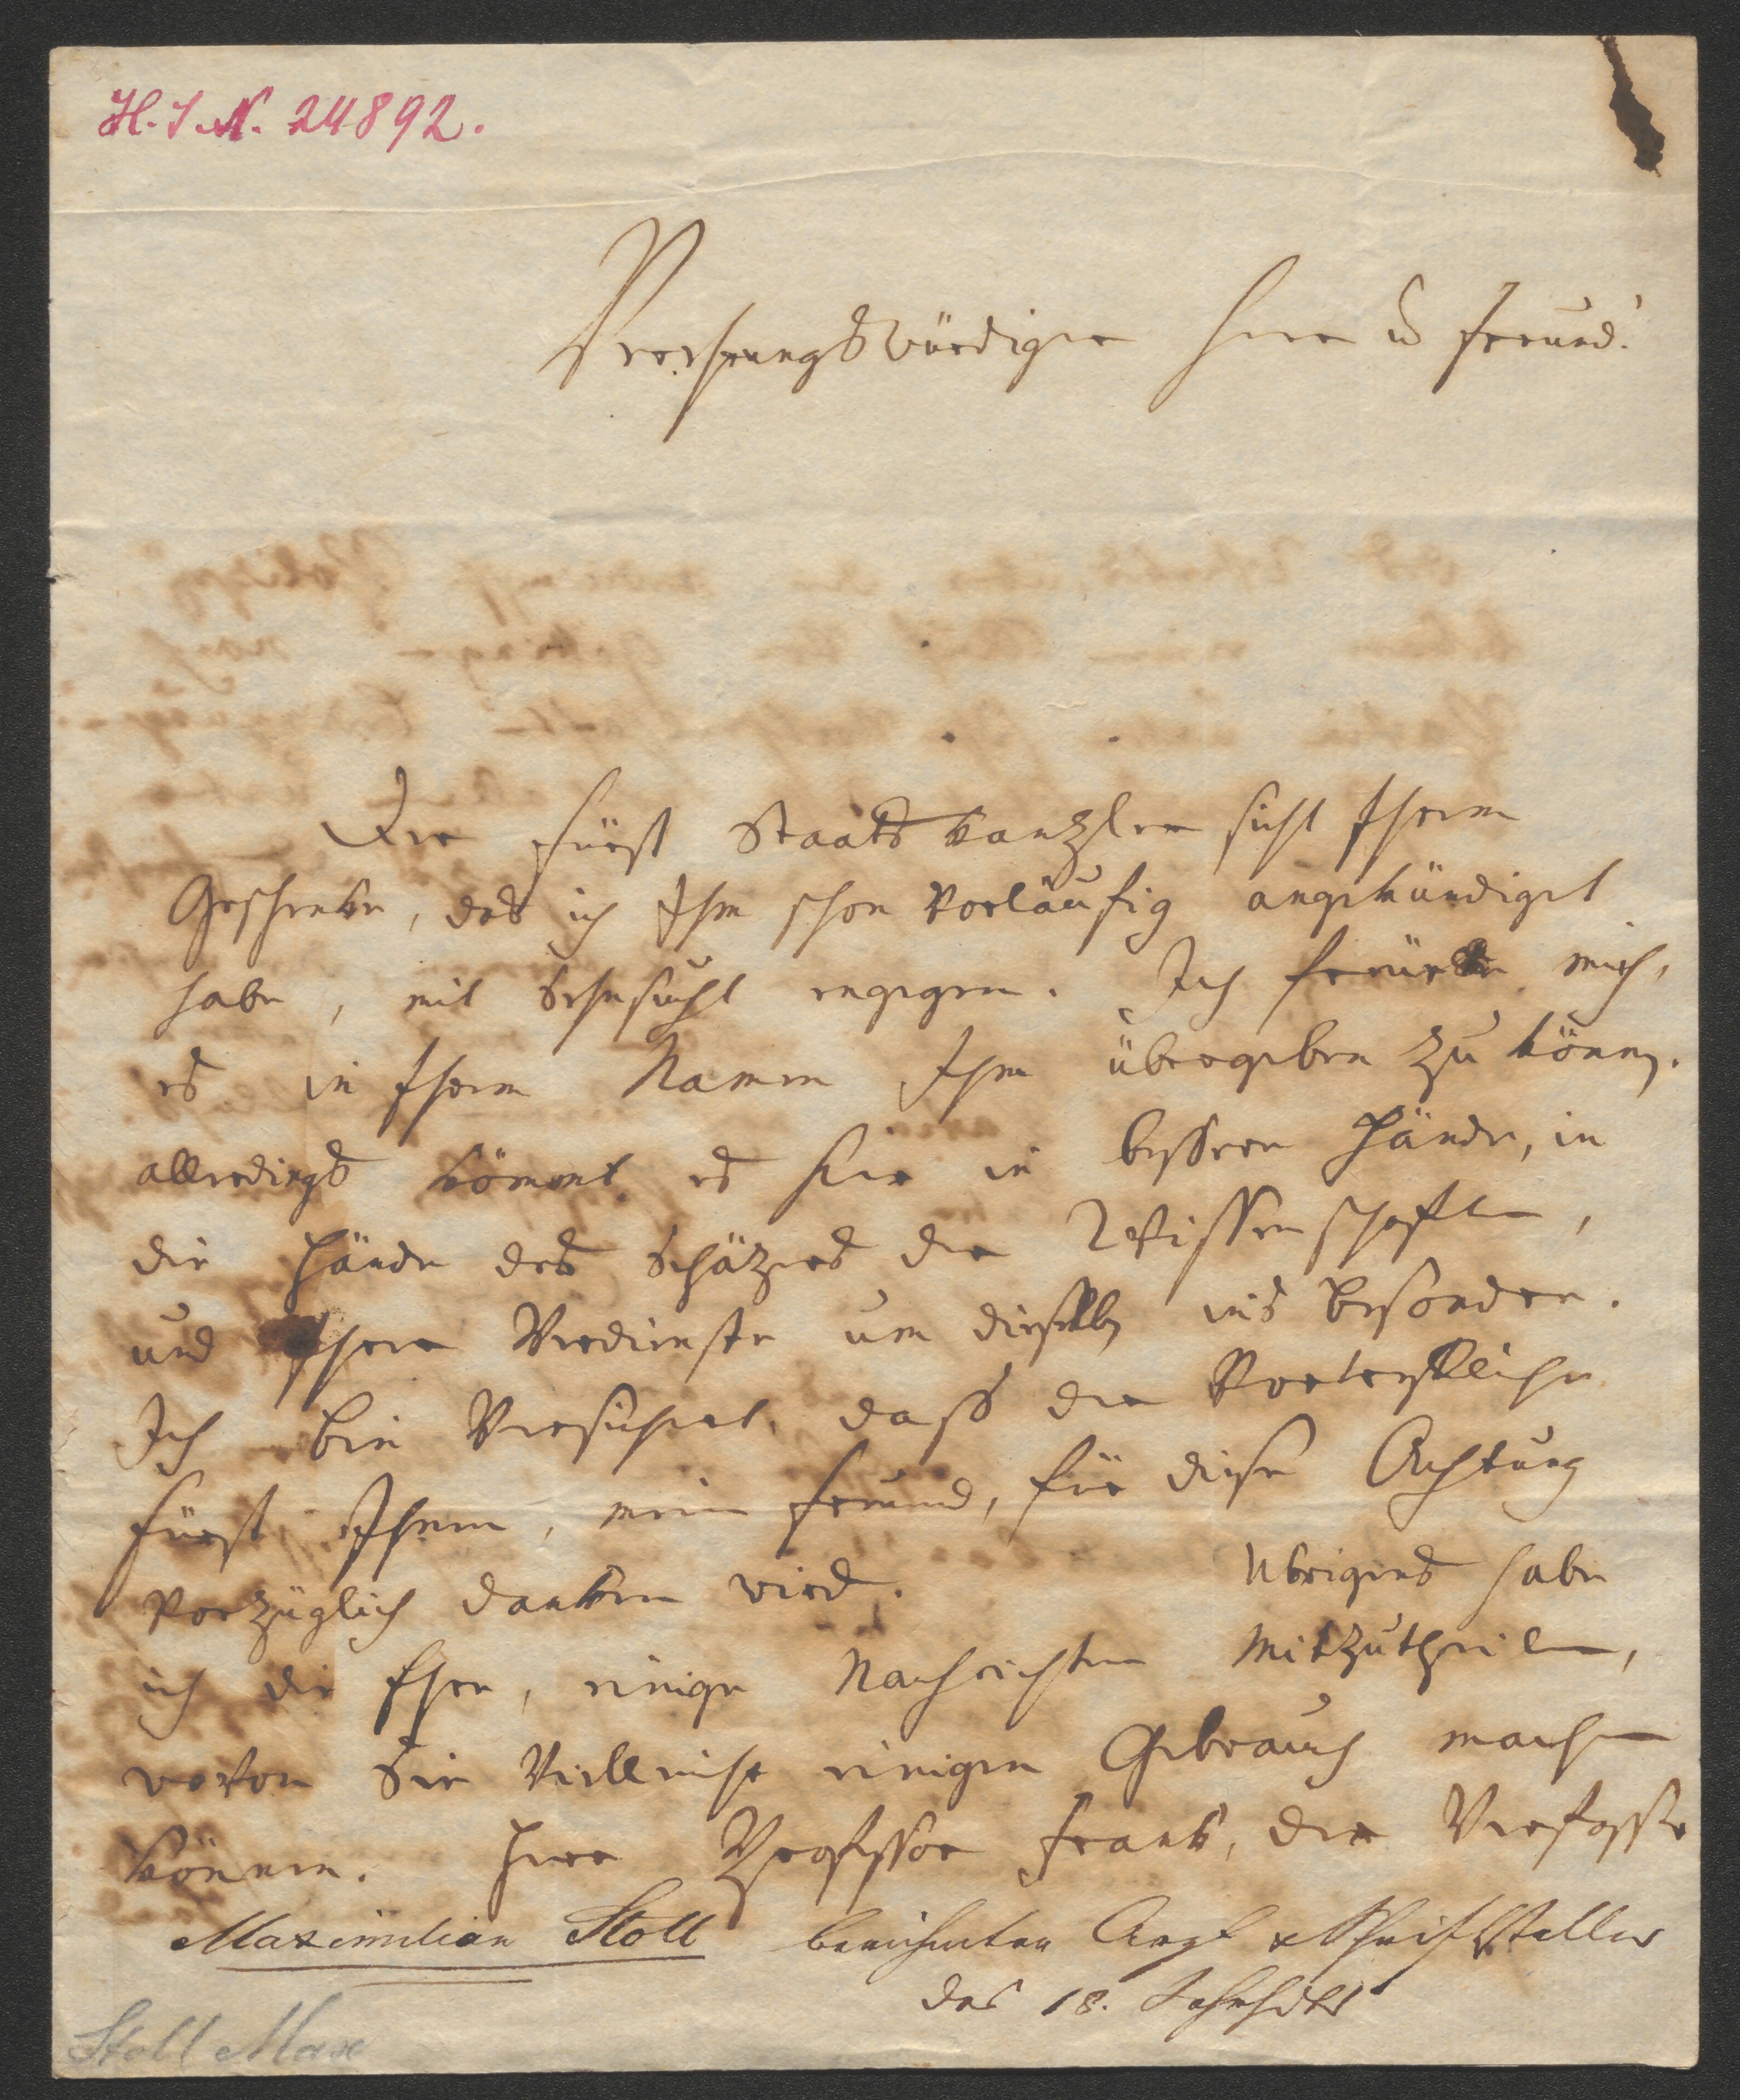 H. I. N. 24892.
Verehrungswürdiger Herr u Freund!
Der Fürst Staatskanzler sieht Ihrem
Geschenke, das ich Ihm schon vorläufig angekündiget
habe, mit Sehnsucht engegen. Ich freüe mich,
es in Ihrem Namen Ihm übergeben zu können.
allerdings kömmt es hier in bessere Hände, in
die Hände des Schäzers der Wissenschaften,
und Ihrer Verdienste um dieselben ins besondere.
Ich bin Versichert, dass der Vortreffliche
Fürst Ihnen, mein Freund, für diese Achtung
vorzüglich danken wird. Ubrigens habe
ich die Ehre, einige Nachrichten Mitzutheilen,
wovon Sie Vielleicht einigen Gebrauch machen
können. Herr Professor Frank, der Verfasser
Maximilian Stoll berühmter Arzt u Schriftsteller
des 18. Jahrhdts
Stoll Max